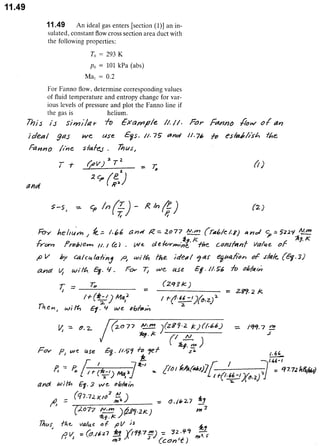 11.49
11.49 An ideal gas enters [section (1)] an in-
sulated, constant flow cross section area duct with
the following properties:
T₀ = 293 K
p₀ = 101 kPa (abs)
Ma₁ = 0.2
For Fanno flow, determine corresponding values
of fluid temperature and entropy change for var-
ious levels of pressure and plot the Fanno line if
the gas is helium.
This is similar to Example 11.11. For Fanno flow of an
ideal gas we use Eqs. 11.75 and 11.76 to establish the
Fanno line states. Thus,
T + (ρV)² T² / 2 cₚ (p²/R²) = T₀ (1)
and
s - s₁ = cₚ ln (T/T₁) - R ln (p/p₁) (2)
For helium, k = 1.66 and R = 2077 N.m/kg.K (Table 1.8) and cₚ = 5224 N.m/kg.K
from Problem 11.1 (c). We determine the constant value of
ρV by calculating ρ, with the ideal gas equation of state (Eq. 3)
and V, with Eq. 4. For T₁ we use Eq. 11.56 to obtain
T₁ = T₀ / (1 + (k-1)/2 Ma₁²) = (293 K) / (1 + (1.66-1)/2 (0.2)²) = 289.2 K
Then, with Eq. 4 we obtain
V₁ = 0.2 √((2077 N.m/kg.K)(289.2 K)(1.66) / (1 N/(kg.m/s²))) = 199.7 m/s
For p₁ we use Eq. 11.59 to get
p₁ = p₀ [1 / (1 + (k-1)/2 Ma₁²)]^(k/(k-1)) = [101 kPa(abs)] [1 / (1 + (1.66-1)/2 (0.2)²)]^(1.66/(1.66-1)) = 97.72 kPa(abs)
and with Eq. 3 we obtain
ρ₁ = (97.72 x 10³ N/m²) / ((2077 N.m/kg.K)(289.2 K)) = 0.1627 kg/m³
Thus, the value of ρV is
ρ₁V₁ = (0.1627 kg/m³)(199.7 m/s) = 32.49 kg/m².s
(con't)